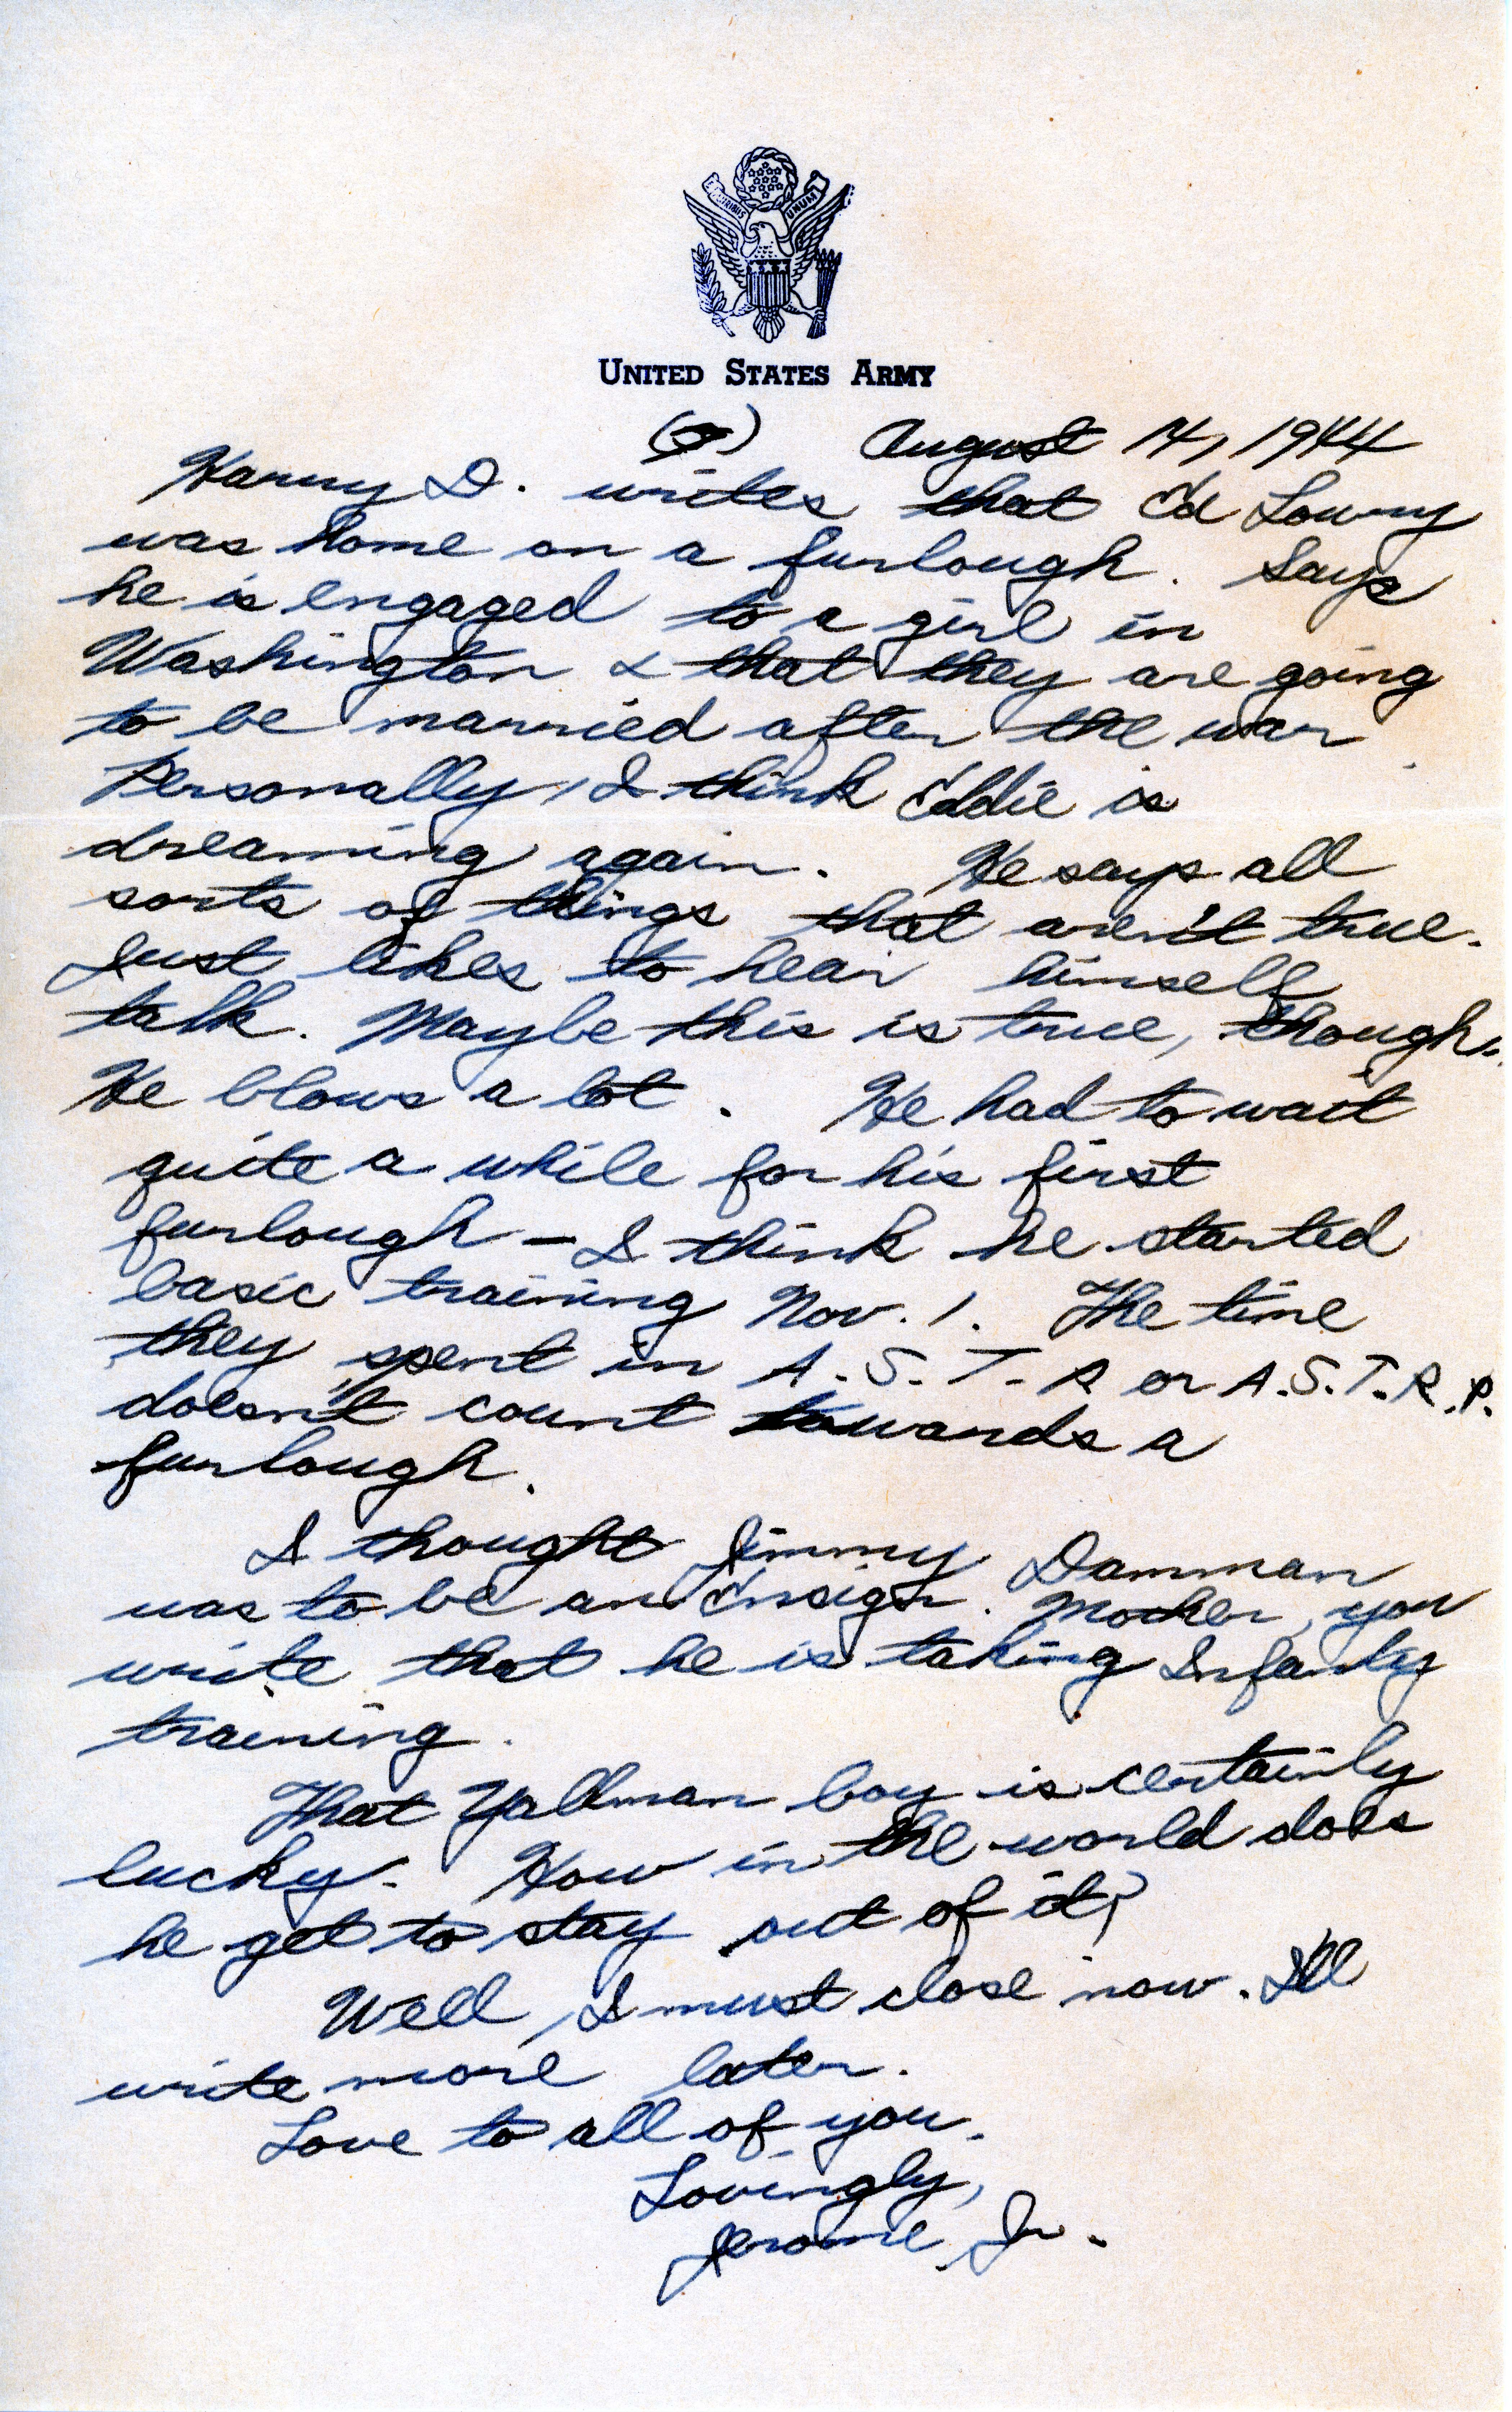 UNUM
UNITED STATES ARMY
August 14, 1944
Harry D. writes that Ed Lowry
was home on a furlough. Says
he is engaged to a girl in
Washington & that they are going
to be married after the war
Personally, I think Eddie is
dreaming again. He says all
sorts of things that aren't true.
Just likes to hear himself
talk. Maybe this is true, though.
He blows a lot. He had to wait
quite a while for his first
furlough – I think he started
basic training Nov. 1. The time
they spent in A.S.T.P. or A.S.T.R.P.
doesn't count towards a
furlough.
I thought Jimmy Damman
was to be an Ensign. Mother, you
write that he is taking Infantry
training.
That Yallman boy is certainly
lucky. How in the world does
he get to stay out of it?
Well, I must close now. I'll
write more later.
Love to all of you.
Lovingly,
Jerome, Jr.